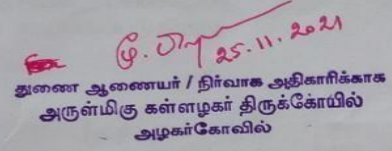 25.11.2021
துணை ஆணையர் / நிர்வாக அதிகாரிக்காக
அருள்மிகு கள்ளழகர் திருக்கோயில்
அழகர்கோவில்